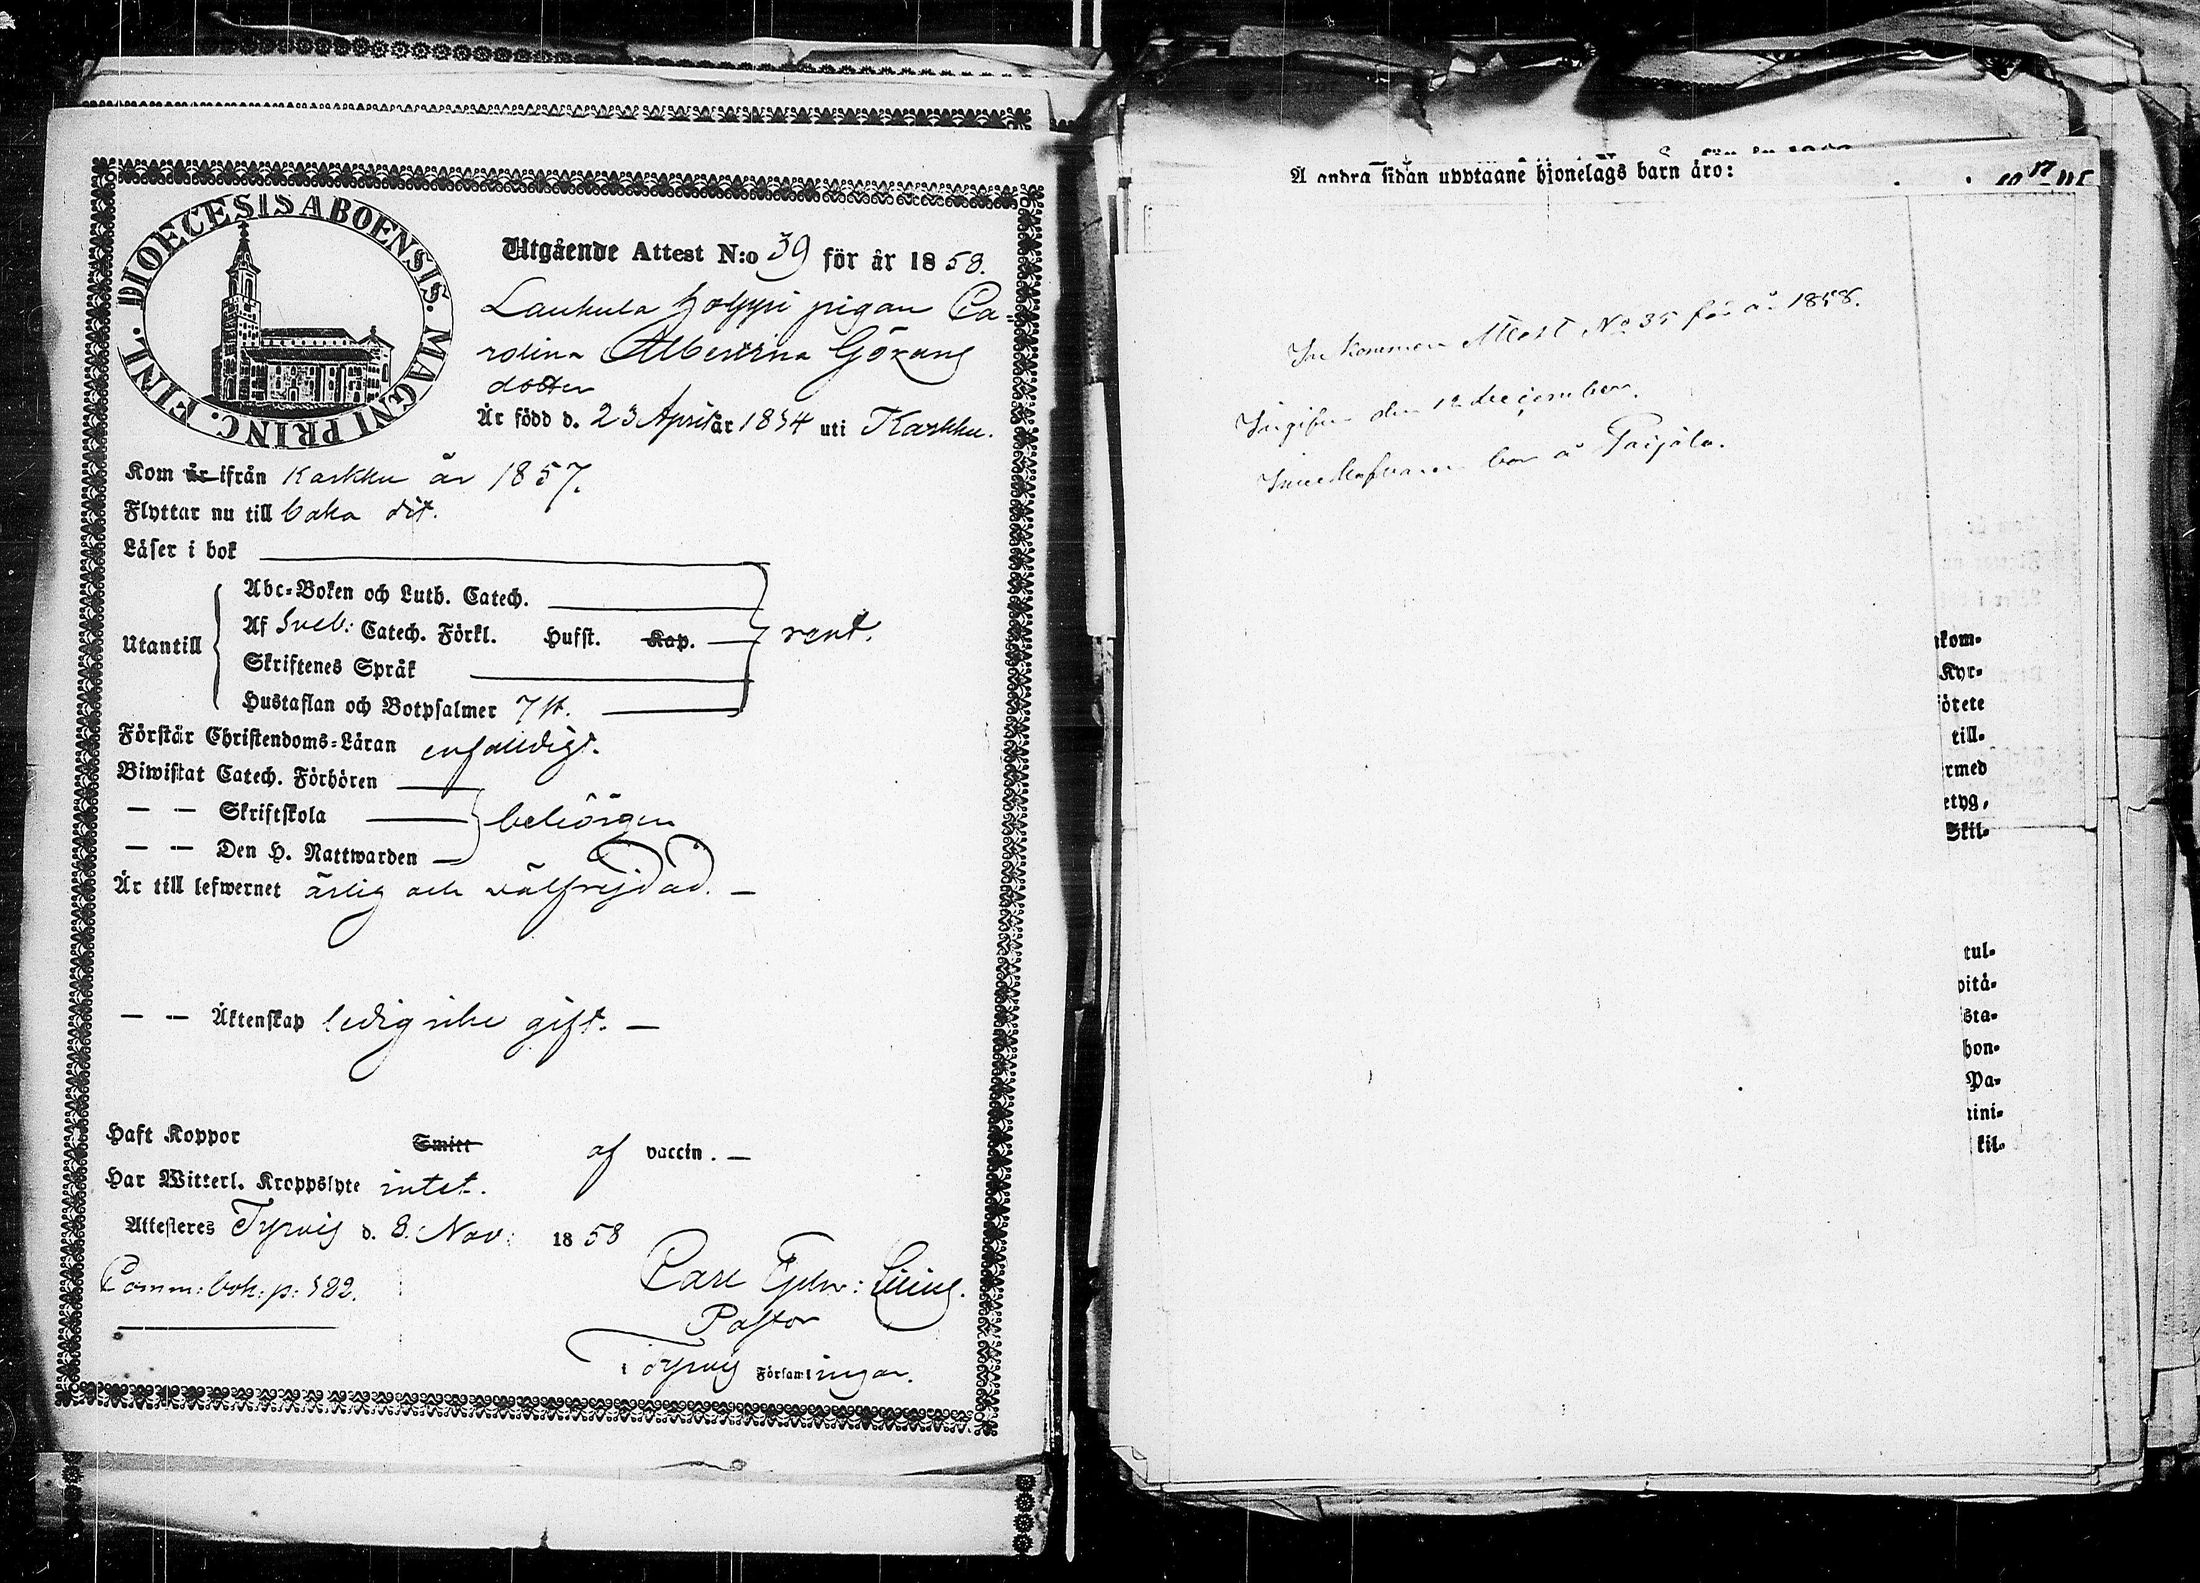 DIOECESIS ABOENSIS. MAGNI PRINC. FINL.
Utgående Attest N:o 39 för år 1858.
Laukula Holppi pigan Ca=
rolina Albertina Görans
dotter
Är född d. 23 April år 1834 uti Karkku.
Kom år ifrån Karkku år 1857.
Flyttar nu till baka dit.
Läser i bok
Abc=Boken och Luth. Catech.
Utantill Af Sveb: Catech. Förkl. Hufst. Kap. rent.
Skriftenes Språk
Hustaflan och Botpsalmer 7 st.
Förstår Christendoms=Läran enfaldigt.
Biwistat Catech. Förhören
— — Skriftskola behörigen
— — Den H. Nattwarden
Är till lefwernet ärlig och välfrejdad. —
— — Äktenskap ledig icke gift. —
Haft Koppor Smitt af vaccin. —
Har Witterl. Kroppslyte intet.
Attesteres Tyrvis d. 8. Nov: 1858
Comm: bok: p: 582.
Carl Fjelm: Lilius.
Pastor
i Tyrvis Församlingar.
Å andra sidan upptagne hjonelags barn äro:
Inkommen Attest No 35 för år 1858.
Ingifven den 12 december.
Innehafvaren bor å Paijala.
nkom=
Kyr=
ötete
till=
rmed
etyg,
Skil=
tul=
pitä=
sta=
hon=
Pa=
nini=
kil=